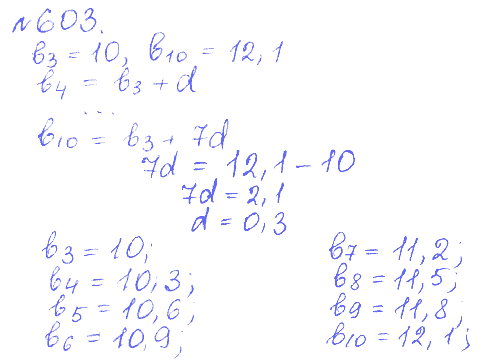 №603.
в₃ = 10, в₁₀ = 12,1
в₄ = в₃ + d
...
в₁₀ = в₃ + 7d
7d = 12,1 – 10
7d = 2,1
d = 0,3
в₃ = 10;
в₄ = 10,3;
в₅ = 10,6;
в₆ = 10,9;
в₇ = 11,2;
в₈ = 11,5;
в₉ = 11,8;
в₁₀ = 12,1;